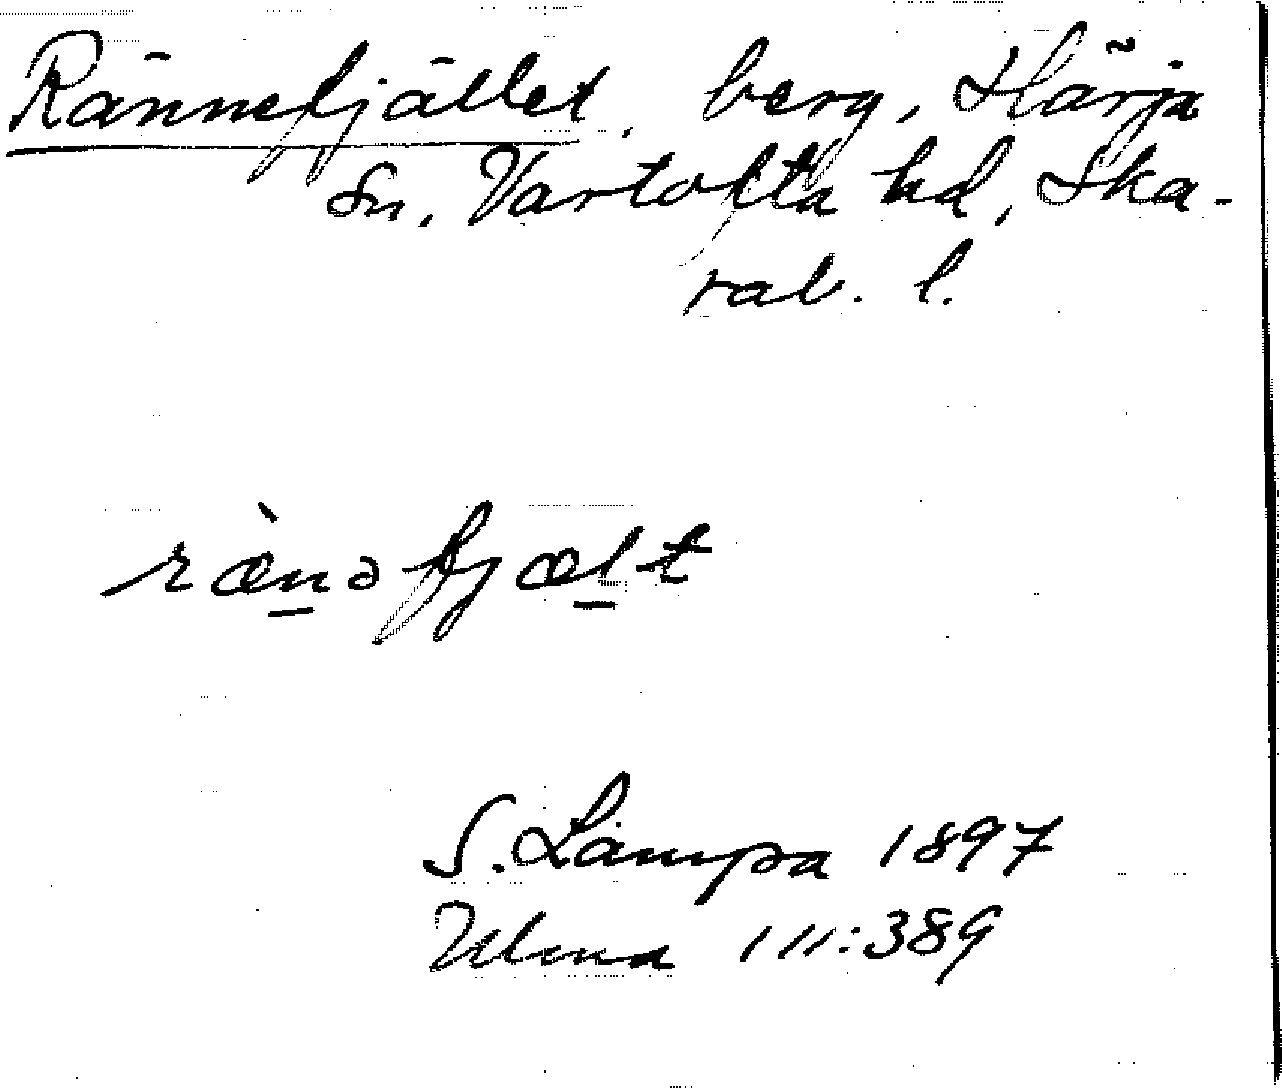 Rännefjället, berg, Härja
Sn, Vartofta hd, Ska-
rab. l.
ræ̀nəfjælt
S. Lampa 1897
Ulma 111:389